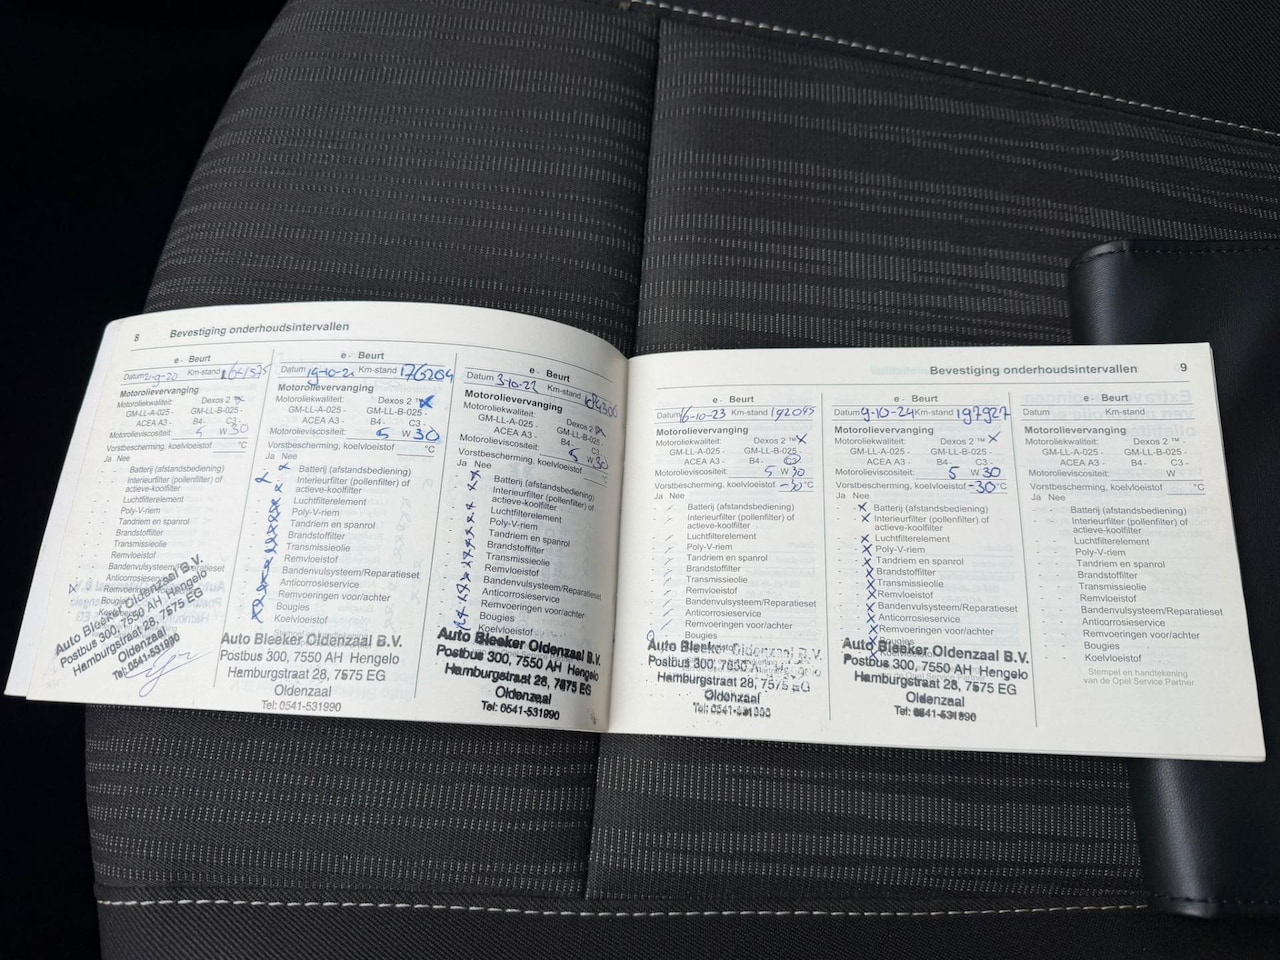 8 Bevestiging onderhoudsintervallen
e - Beurt
Datum 21-9-20 Km-stand
Motorolievervanging
Motoroliekwaliteit: Dexos 2
GM-LL-A-025 - GM-LL-B-025 -
ACEA A3 - B4- C3 -
Motorolieviscositeit: 5 W 30
Vorstbescherming, koelvloeistof °C
Ja Nee
Batterij (afstandsbediening)
Interieurfilter (pollenfilter) of
actieve-koolfilter
Luchtfilterelement
Poly-V-riem
Tandriem en spanrol
Brandstoffilter
Transmissieolie
Remvloeistof
Bandenvulsysteem/Reparatieset
Anticorrosieservice
Remvoeringen voor/achter
Bougies
Auto Bleeker Oldenzaal B.V.
Postbus 300, 7550 AH Hengelo
Hamburgstraat 28, 7575 EG
Oldenzaal
Tel: 0541-531990
e - Beurt
Datum 19-10-21 Km-stand 176204
Motorolievervanging
Motoroliekwaliteit: Dexos 2 ™ x
GM-LL-A-025 - GM-LL-B-025 -
ACEA A3 - B4- C3 -
Motorolieviscositeit: 5 W 30
Vorstbescherming, koelvloeistof °C
Ja Nee
Batterij (afstandsbediening)
Interieurfilter (pollenfilter) of
actieve-koolfilter
Luchtfilterelement
Poly-V-riem
Tandriem en spanrol
Brandstoffilter
Transmissieolie
Remvloeistof
Bandenvulsysteem/Reparatieset
Anticorrosieservice
Remvoeringen voor/achter
Bougies
Koelvloeistof
Auto Bleeker Oldenzaal B.V.
Postbus 300, 7550 AH Hengelo
Hamburgstraat 28, 7575 EG
Oldenzaal
Tel: 0541-531990
e - Beurt
Datum 3-10-22 Km-stand
Motorolievervanging
Motoroliekwaliteit: Dexos 2
GM-LL-A-025 - GM-LL-B-025 -
ACEA A3 - B4- C3 -
Motorolieviscositeit: 5 W 30
Vorstbescherming, koelvloeistof °C
Ja Nee
Batterij (afstandsbediening)
Interieurfilter (pollenfilter) of
actieve-koolfilter
Luchtfilterelement
Poly-V-riem
Tandriem en spanrol
Brandstoffilter
Transmissieolie
Remvloeistof
Bandenvulsysteem/Reparatieset
Anticorrosieservice
Remvoeringen voor/achter
Bougies
Koelvloeistof
Auto Bleeker Oldenzaal B.V.
Postbus 300, 7550 AH Hengelo
Hamburgstraat 28, 7575 EG
Oldenzaal
Tel: 0541-531990
Bevestiging onderhoudsintervallen 9
e - Beurt
Datum 16-10-23 Km-stand 192045
Motorolievervanging
Motoroliekwaliteit: Dexos 2 ™ x
GM-LL-A-025 - GM-LL-B-025 -
ACEA A3 - B4- C3
Motorolieviscositeit: 5 W 30
Vorstbescherming, koelvloeistof -30 °C
Ja Nee
Batterij (afstandsbediening)
Interieurfilter (pollenfilter) of
actieve-koolfilter
Luchtfilterelement
Poly-V-riem
Tandriem en spanrol
Brandstoffilter
Transmissieolie
Remvloeistof
Bandenvulsysteem/Reparatieset
Anticorrosieservice
Remvoeringen voor/achter
Bougies
Auto Bleeker Oldenzaal B.V.
Postbus 300, 7550 AH Hengelo
Hamburgstraat 28, 7575 EG
Oldenzaal
Tel: 0541-531990
e - Beurt
Datum 9-10-24 Km-stand 197927
Motorolievervanging
Motoroliekwaliteit: Dexos 2 ™ x
GM-LL-A-025 - GM-LL-B-025 -
ACEA A3 - B4- C3 -
Motorolieviscositeit: 5 W 30
Vorstbescherming, koelvloeistof -30 °C
Ja Nee
Batterij (afstandsbediening)
Interieurfilter (pollenfilter) of
actieve-koolfilter
Luchtfilterelement
Poly-V-riem
Tandriem en spanrol
Brandstoffilter
Transmissieolie
Remvloeistof
Bandenvulsysteem/Reparatieset
Anticorrosieservice
Remvoeringen voor/achter
Bougies
Auto Bleeker Oldenzaal B.V.
Postbus 300, 7550 AH Hengelo
Hamburgstraat 28, 7575 EG
Oldenzaal
Tel: 0541-531990
e - Beurt
Datum Km-stand
Motorolievervanging
Motoroliekwaliteit: Dexos 2 ™ -
GM-LL-A-025 - GM-LL-B-025 -
ACEA A3 - B4- C3 -
Motorolieviscositeit: W
Vorstbescherming, koelvloeistof °C
Ja Nee
Batterij (afstandsbediening)
Interieurfilter (pollenfilter) of
actieve-koolfilter
Luchtfilterelement
Poly-V-riem
Tandriem en spanrol
Brandstoffilter
Transmissieolie
Remvloeistof
Bandenvulsysteem/Reparatieset
Anticorrosieservice
Remvoeringen voor/achter
Bougies
Koelvloeistof
Stempel en handtekening
van de Opel Service Partner